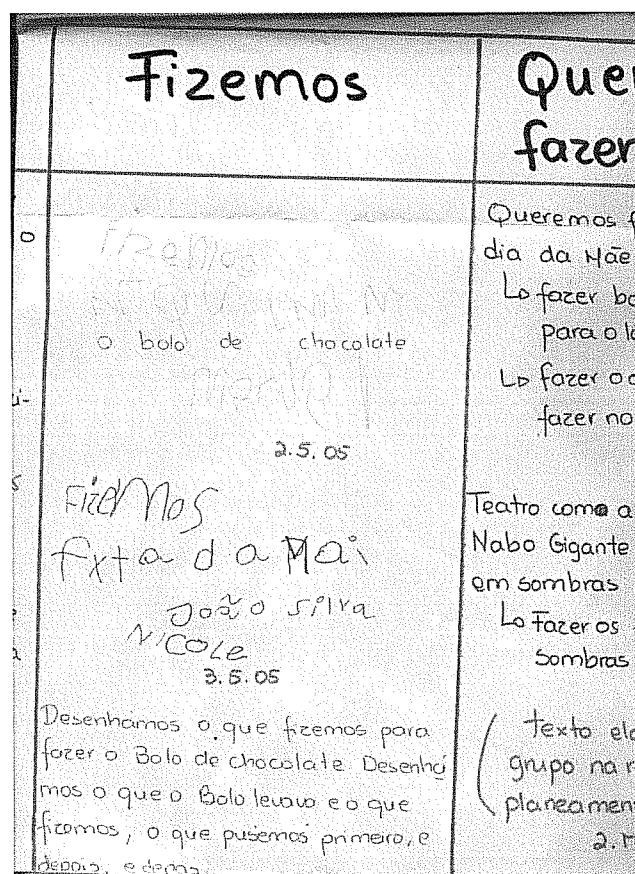 Fizemos
Fizemos
o bolo de chocolate
2.5.05
Fizemos
fxta da Mai
João silva
Nicole
3.5.05
Desenhamos o que fizemos para
fazer o Bolo de chocolate Desenha
mos o que o Bolo levava e o que
fizemos, o que pusemos primeiro, e
depois, e depois
Que
fazer
Queremos
dia da Mãe
fazer
para o
fazer o
fazer no
Teatro como a
Nabo Gigante
em sombras
Fazer os
Sombras
texto
grupo na
planeamen
2.